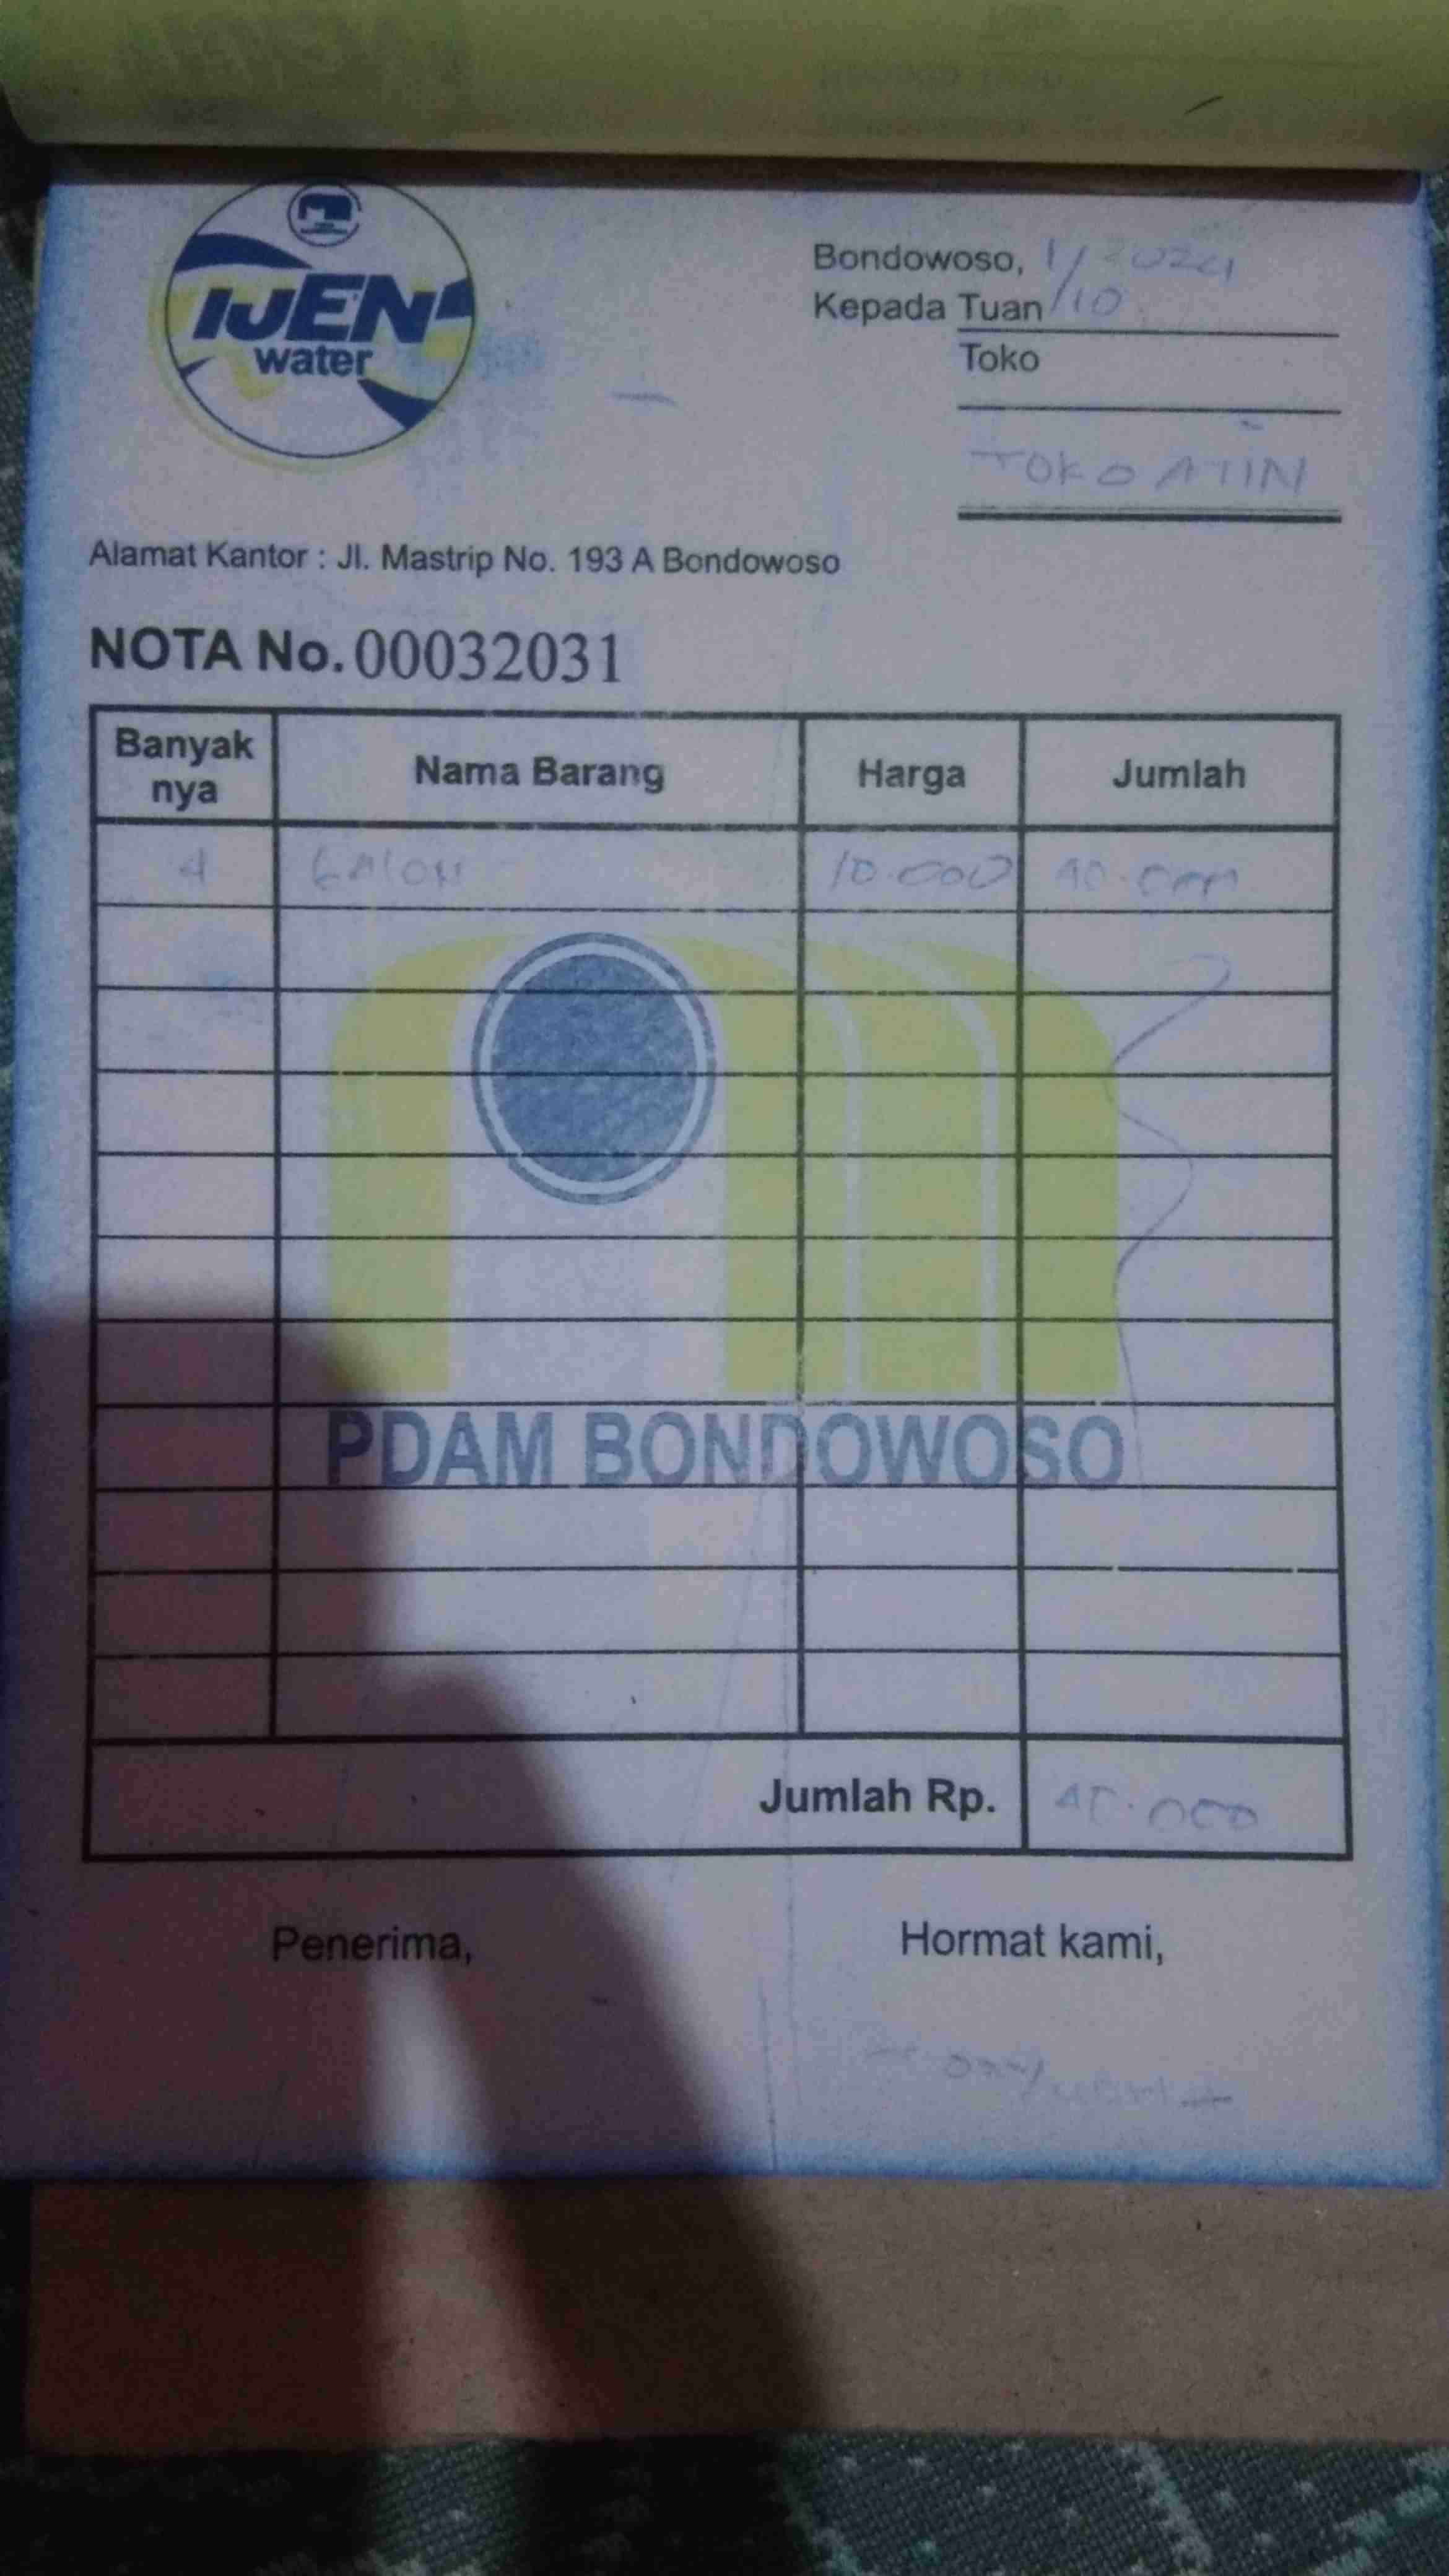 IJEN
water
Bondowoso, 1/10 2024
Kepada Tuan
Toko
TOKO ATIN
Alamat Kantor : Jl. Mastrip No. 193 A Bondowoso
NOTA No. 00032031
Banyak nya Nama Barang Harga Jumlah
4 GALON 10.000 40.000
PDAM BONDOWOSO
Jumlah Rp. 40.000
Penerima, Hormat kami,